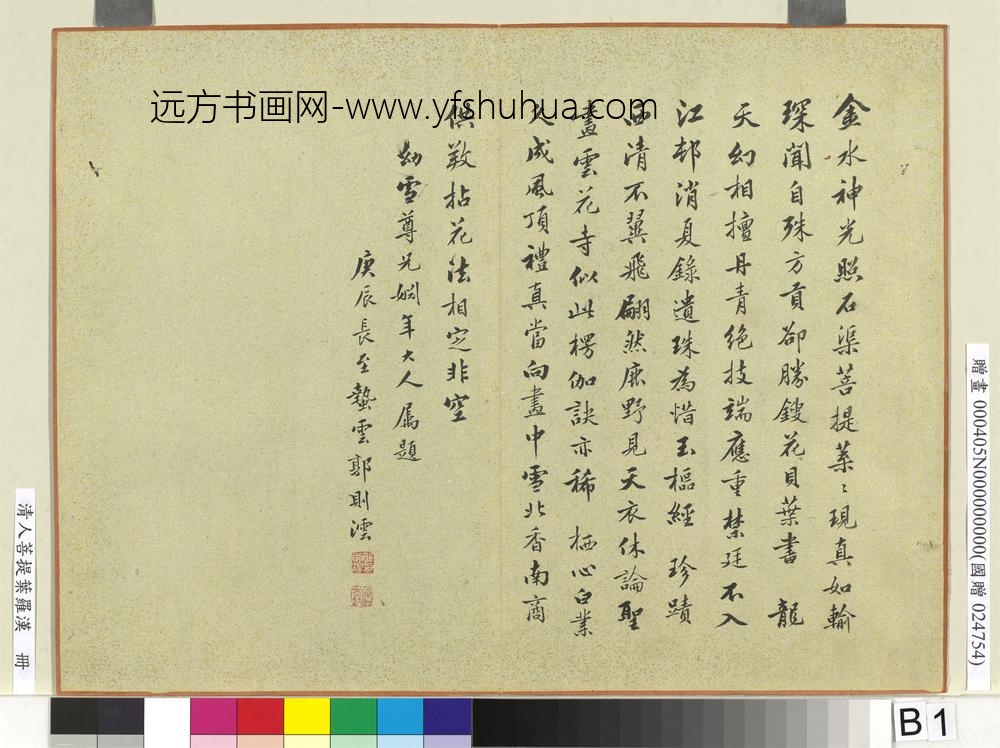 远方书画网-www.yfshuhua.com
金水神光照石渠菩提葉ゝ現真如輸
琛聞自殊方貢郤勝鎪花貝葉書 龍
天幻相擅丹青絕技端應重禁廷不入
江邨消夏錄遺珠為惜玉樞經 珍蹟
西清不翼飛翩然鹿野見天衣休論聖
畫雲花寺似此楞伽訣亦稀 栖心白業
久成風頂禮真當向畫中雪北香南商
供敬拈花法相定非空
幼雪尊兄姻年大人属題
庚辰長至蟄雲郭則澐
贈畫 000405N000000000(國贈 024754)
清人菩提葉羅漢 冊
B 1